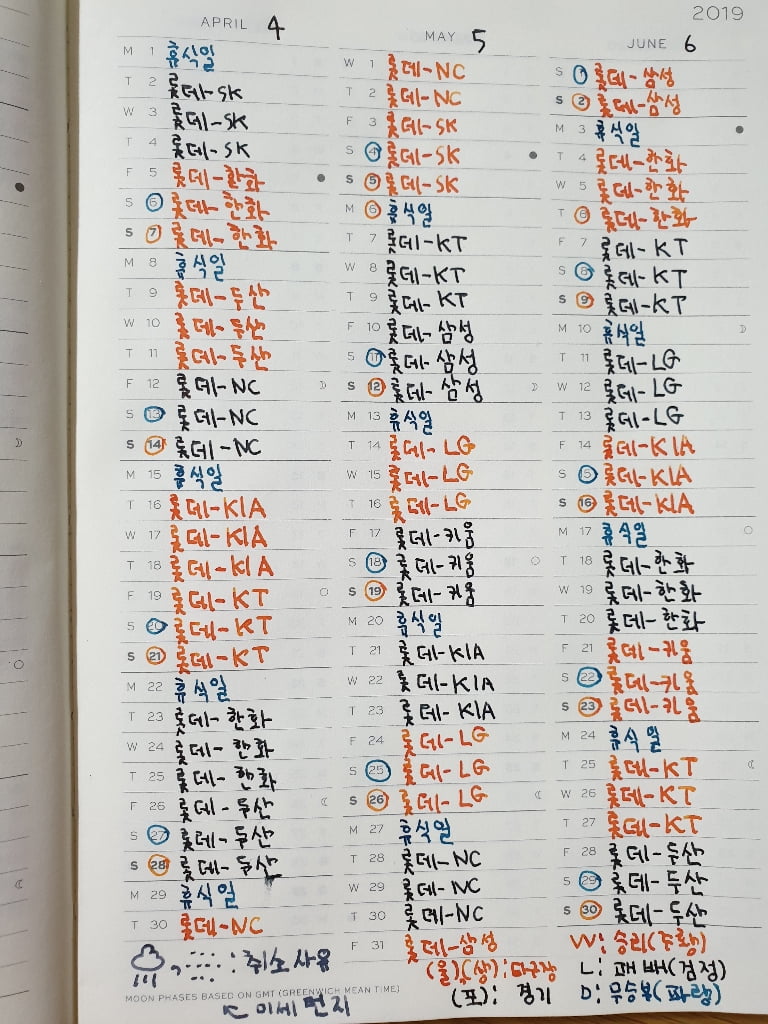 2019
APRIL 4
M 1 휴식일
T 2 롯데-SK
W 3 롯데-SK
T 4 롯데-SK
F 5 롯데-한화
S 6 롯데-한화
S 7 롯데-한화
M 8 휴식일
T 9 롯데-두산
W 10 롯데-두산
T 11 롯데-두산
F 12 롯데-NC
S 13 롯데-NC
S 14 롯데-NC
M 15 휴식일
T 16 롯데-KIA
W 17 롯데-KIA
T 18 롯데-KIA
F 19 롯데-KT
S 20 롯데-KT
S 21 롯데-KT
M 22 휴식일
T 23 롯데-한화
W 24 롯데-한화
T 25 롯데-한화
F 26 롯데-두산
S 27 롯데-두산
S 28 롯데-두산
M 29 휴식일
T 30 롯데-NC
MAY 5
W 1 롯데-NC
T 2 롯데-NC
F 3 롯데-SK
S 4 롯데-SK
S 5 롯데-SK
M 6 휴식일
T 7 롯데-KT
W 8 롯데-KT
T 9 롯데-KT
F 10 롯데-삼성
S 11 롯데-삼성
S 12 롯데-삼성
M 13 휴식일
T 14 롯데-LG
W 15 롯데-LG
T 16 롯데-LG
F 17 롯데-키움
S 18 롯데-키움
S 19 롯데-키움
M 20 휴식일
T 21 롯데-KIA
W 22 롯데-KIA
T 23 롯데-KIA
F 24 롯데-LG
S 25 롯데-LG
S 26 롯데-LG
M 27 휴식일
T 28 롯데-NC
W 29 롯데-NC
T 30 롯데-NC
F 31 롯데-삼성
JUNE 6
S 1 롯데-삼성
S 2 롯데-삼성
M 3 휴식일
T 4 롯데-한화
W 5 롯데-한화
T 6 롯데-한화
F 7 롯데-KT
S 8 롯데-KT
S 9 롯데-KT
M 10 휴식일
T 11 롯데-LG
W 12 롯데-LG
T 13 롯데-LG
F 14 롯데-KIA
S 15 롯데-KIA
S 16 롯데-KIA
M 17 휴식일
T 18 롯데-한화
W 19 롯데-한화
T 20 롯데-한화
F 21 롯데-키움
S 22 롯데-키움
S 23 롯데-키움
M 24 휴식일
T 25 롯데-KT
W 26 롯데-KT
T 27 롯데-KT
F 28 롯데-두산
S 29 롯데-두산
S 30 롯데-두산
: 취소사유
MOON PHASES BASED ON GMT (GREENWICH MEAN TIME)
미세먼지
(울),(상):
(포): 경기
W: 승리(주황)
L: 패배(검정)
D: 무승부(파랑)